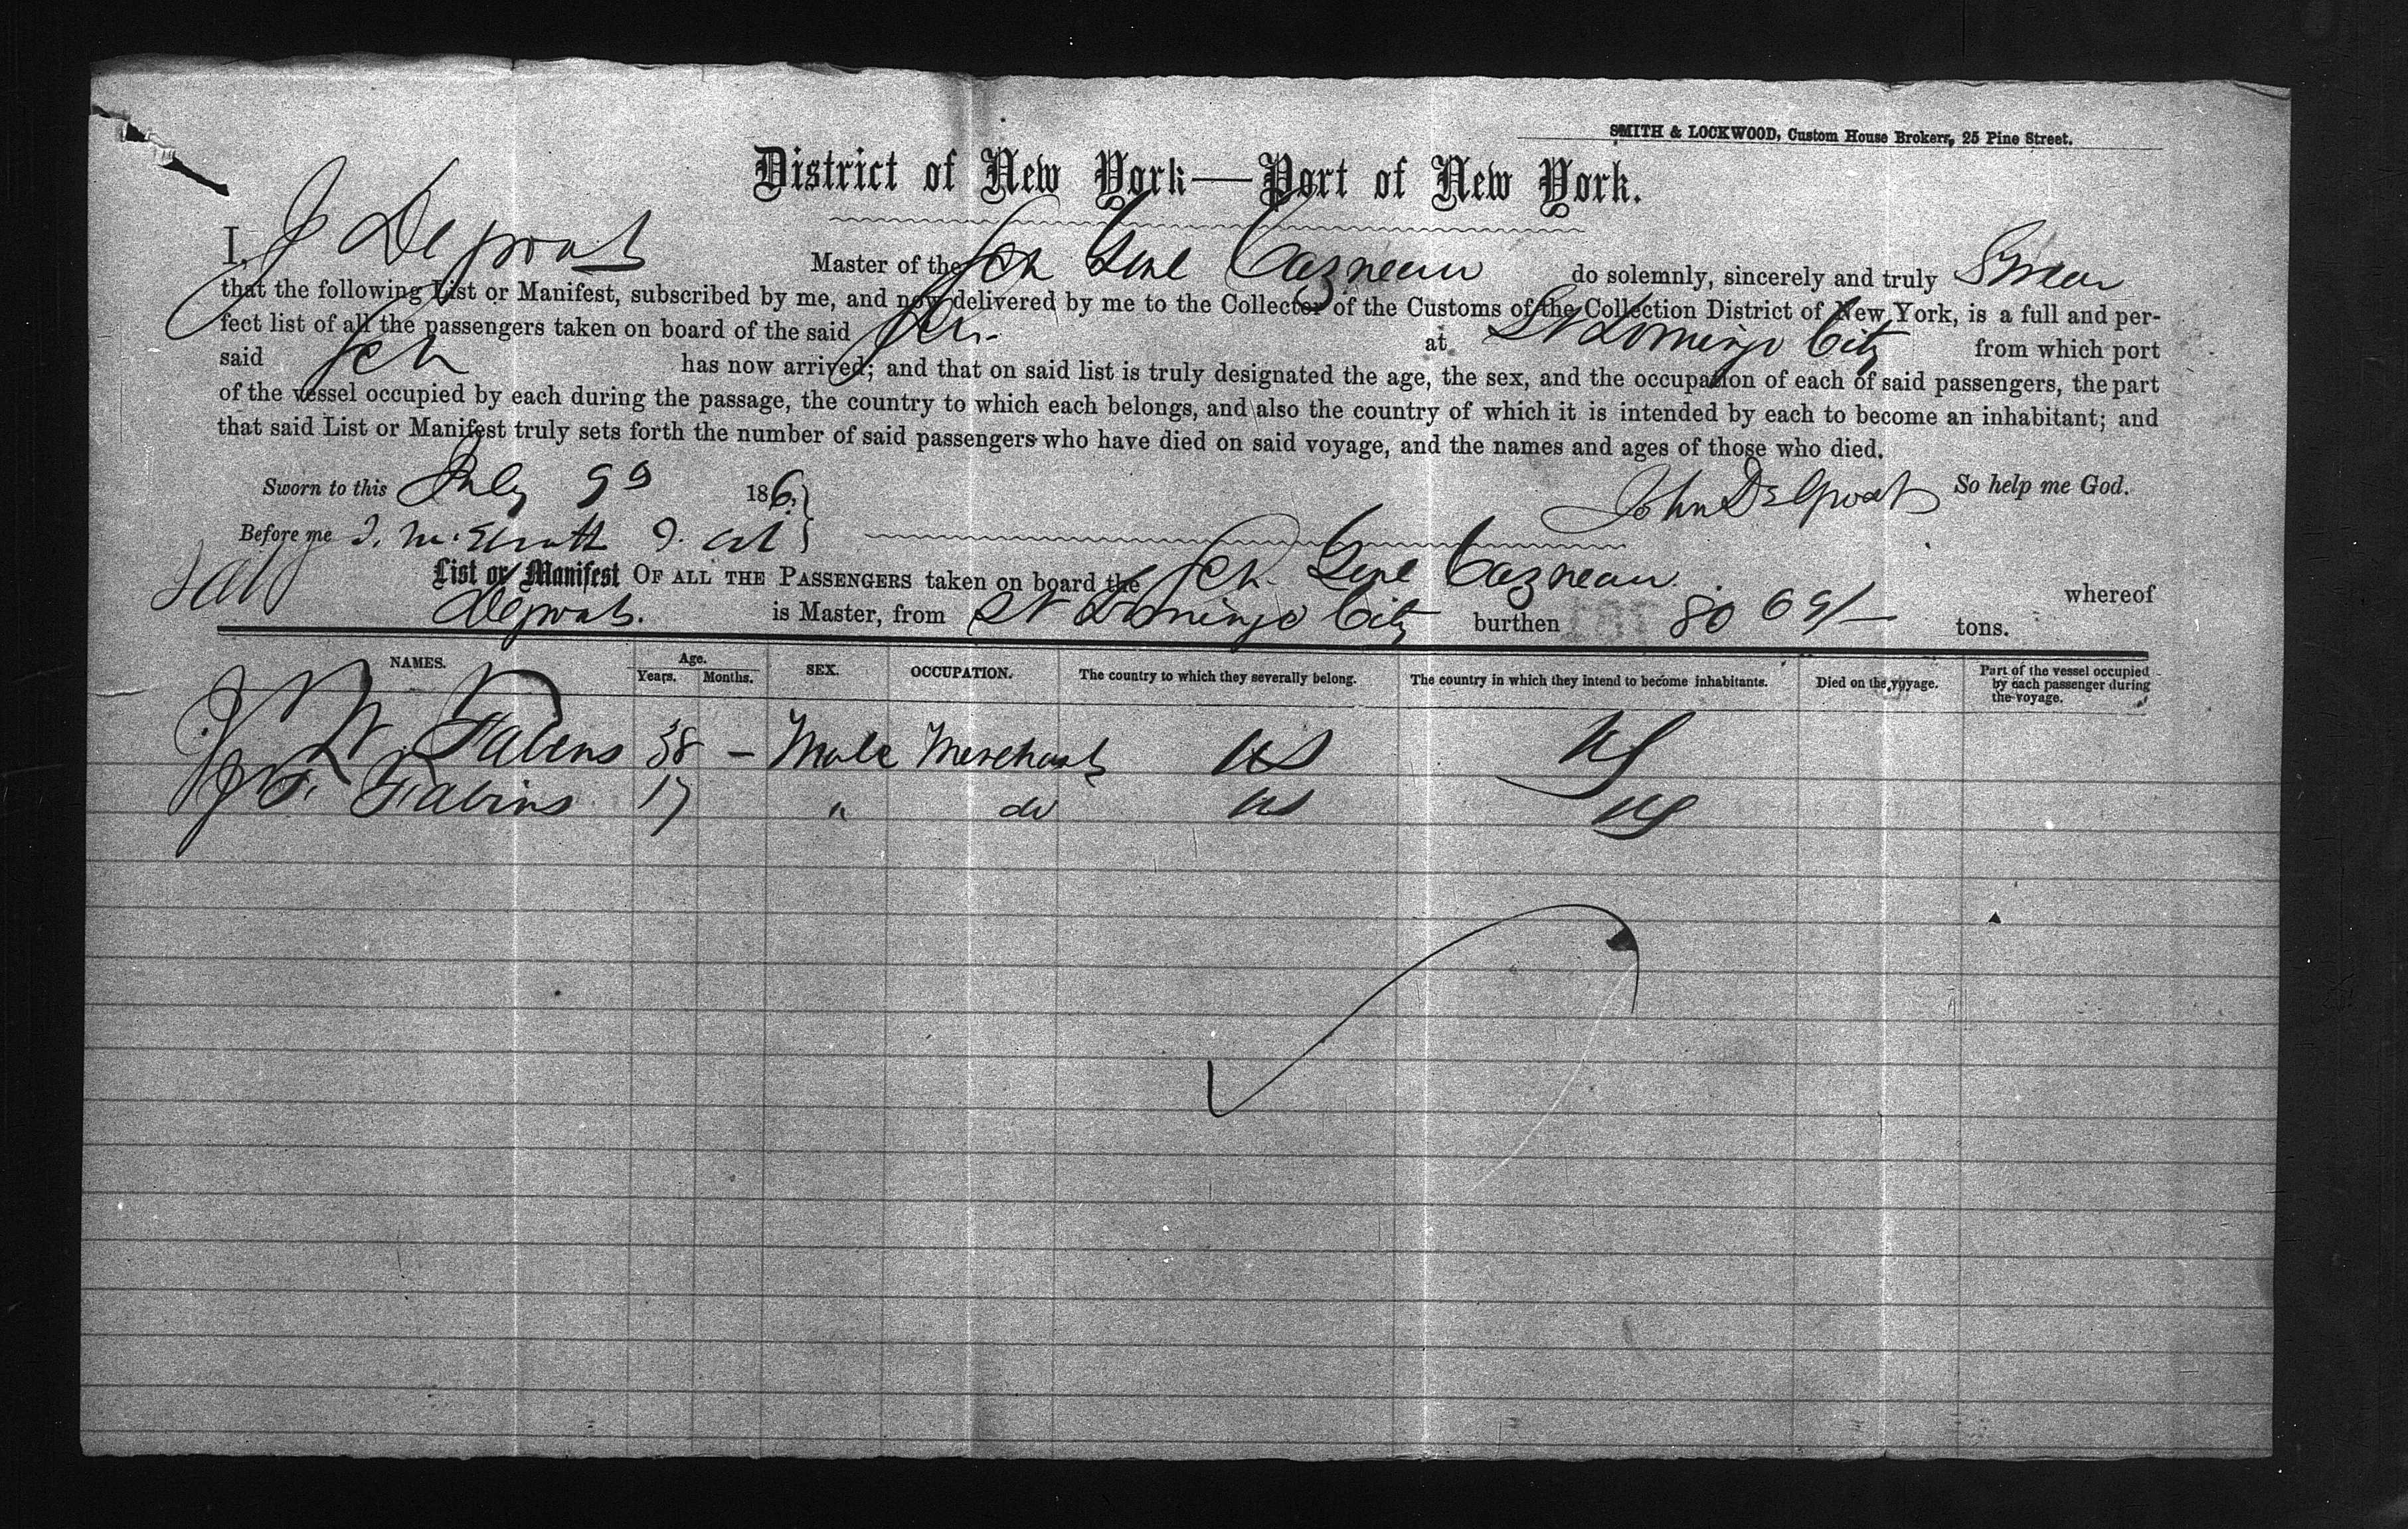 SMITH & LOCKWOOD, Custom House Brokers, 25 Pine Street.
District of New York—Port of New York.
I, J Delprat Master of the Sch Genl Cazneau do solemnly, sincerely and truly Swear
that the following List or Manifest, subscribed by me, and now delivered by me to the Collector of the Customs of the Collection District of New York, is a full and per-
fect list of all the passengers taken on board of the said Sch. at St Domingo City from which port
said Sch has now arrived; and that on said list is truly designated the age, the sex, and the occupation of each of said passengers, the part
of the vessel occupied by each during the passage, the country to which each belongs, and also the country of which it is intended by each to become an inhabitant; and
that said List or Manifest truly sets forth the number of said passengers who have died on said voyage, and the names and ages of those who died.
Sworn to this July 186 John Delprat So help me God.
Before me
List or Manifest OF ALL THE PASSENGERS taken on board the Sch. Genl Cazneau whereof
Delprat. is Master, from St Domingo City burthen 80 69/ tons.
NAMES. Age. Years. Months. SEX. OCCUPATION. The country to which they severally belong. The country in which they intend to become inhabitants. Died on the voyage. Part of the vessel occupied by each passenger during the voyage.
J W Fabens 38 – Male Merchant US US
J F. Fabens 17 " do US US